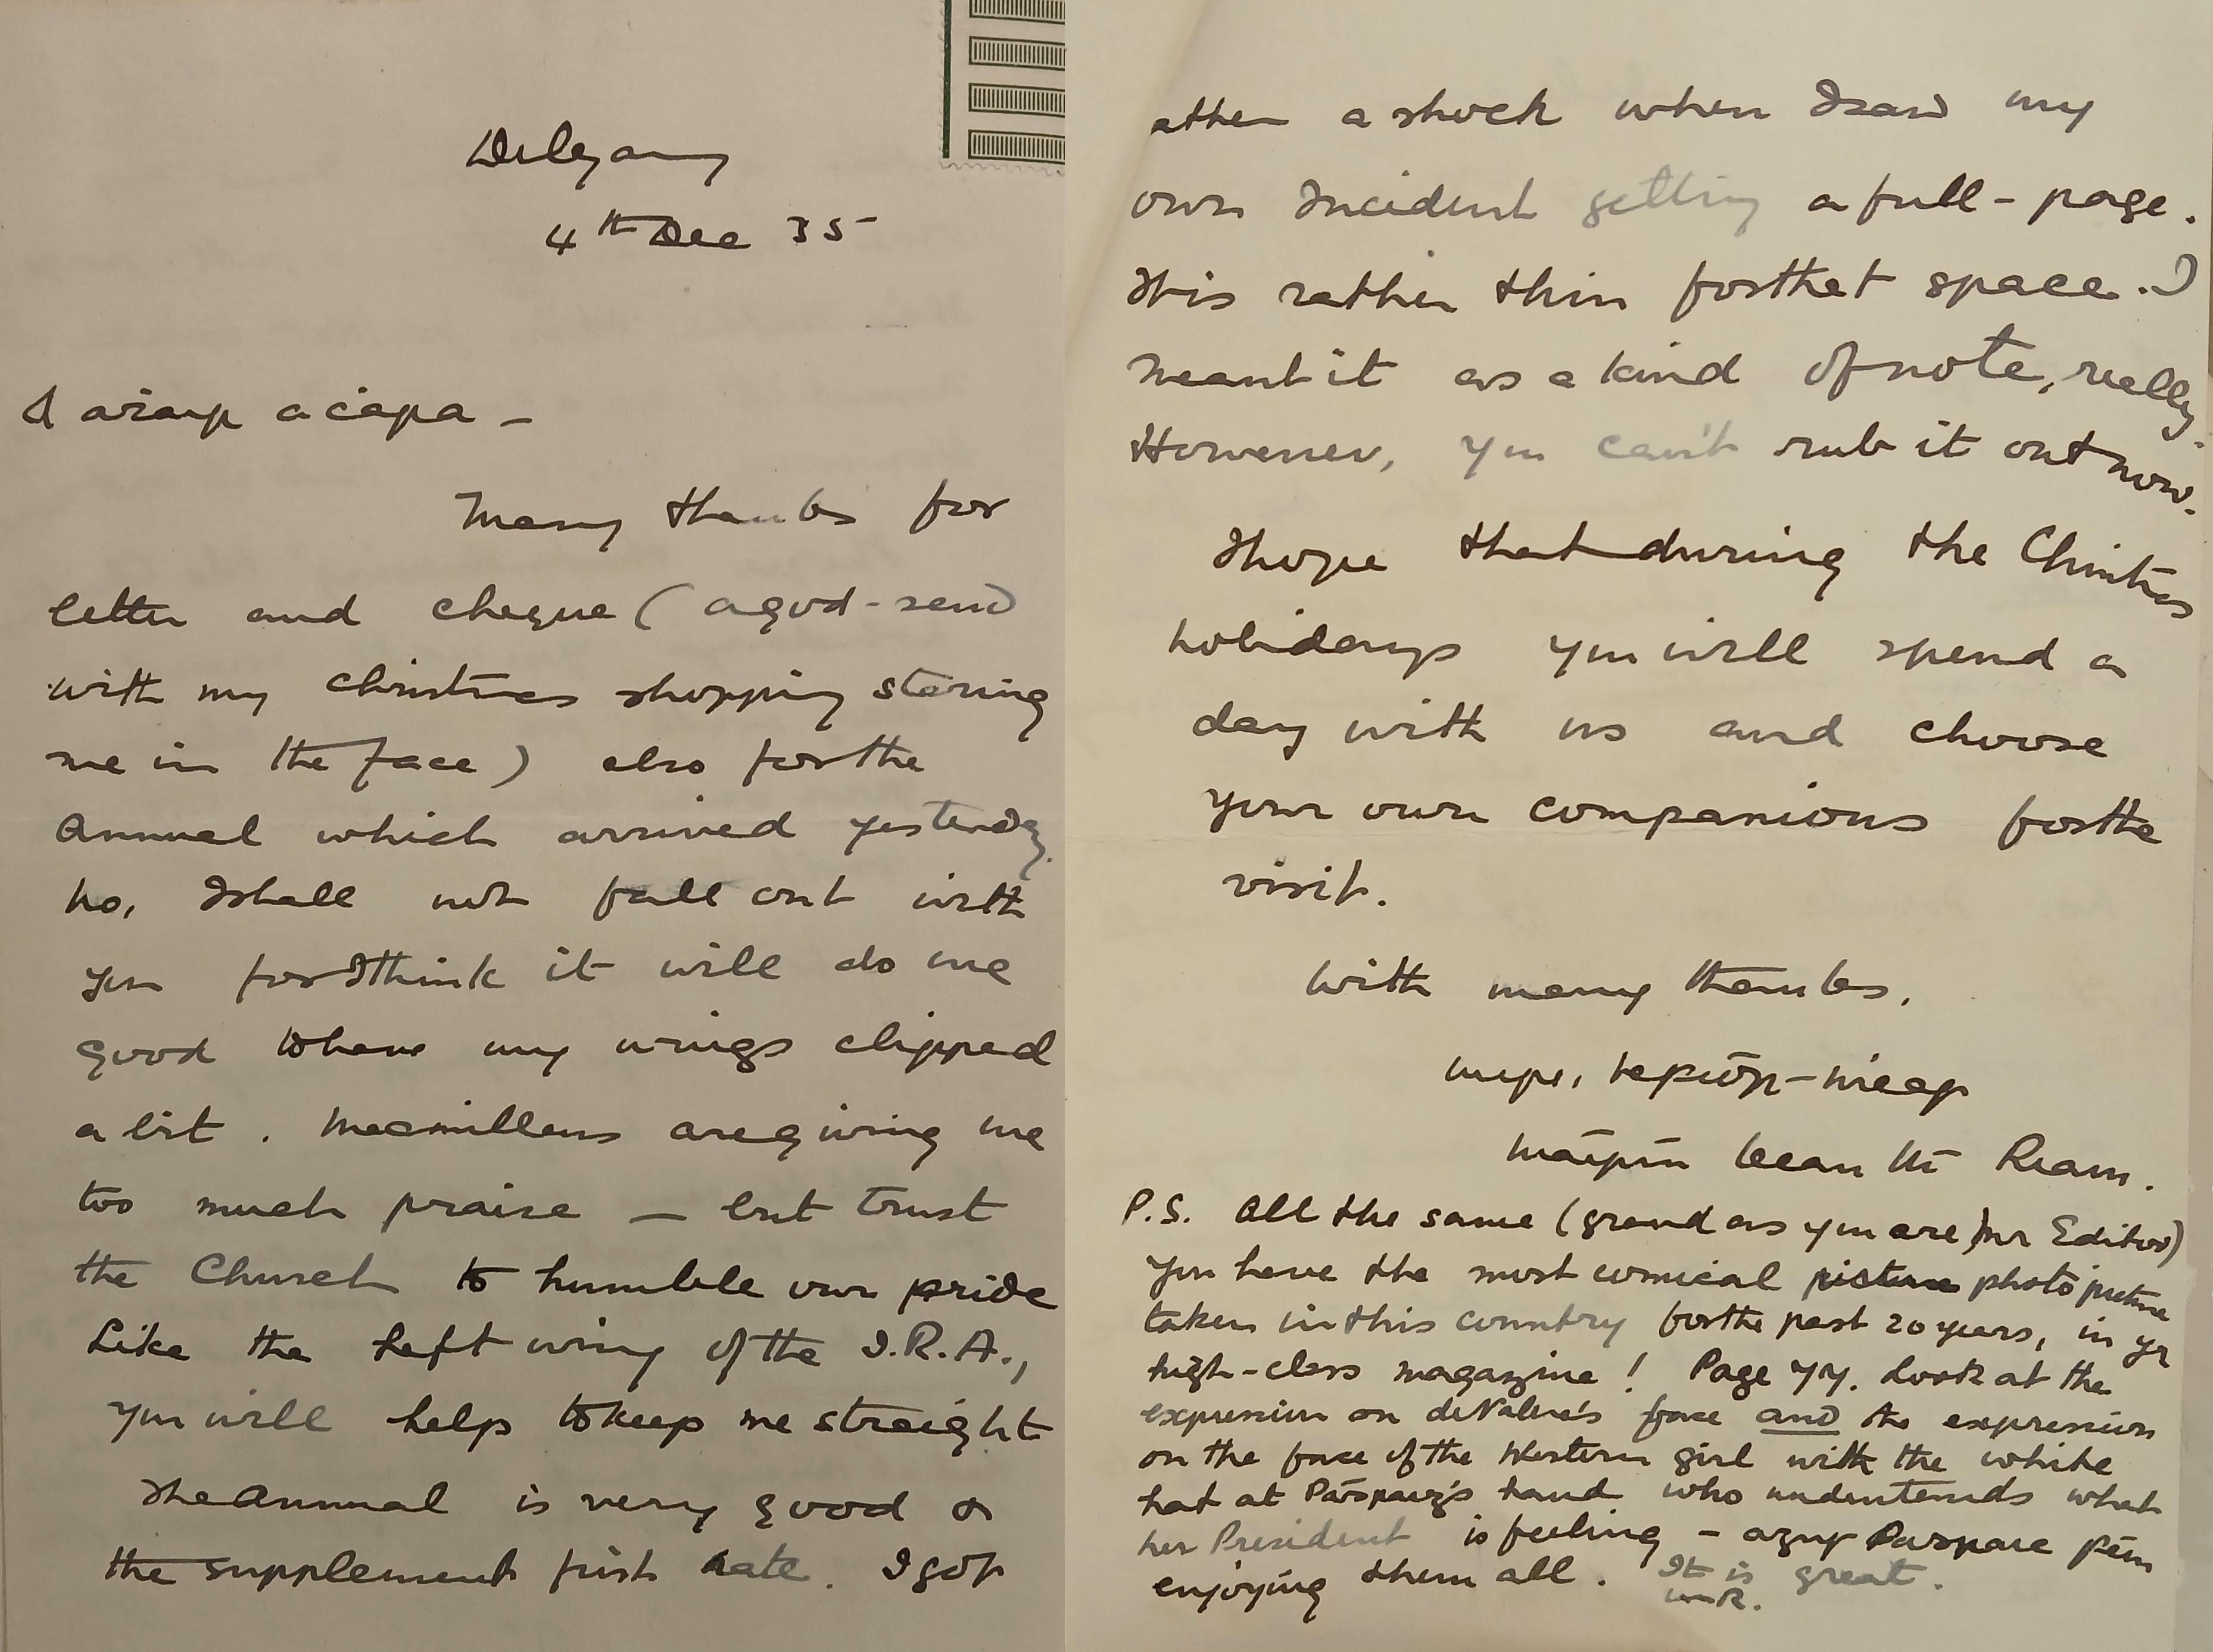 Delgany
4th Dec 35
A aṫair a ċara –
Many thanks for
letter and cheque (a god-send
with my Christmas shopping staring
me in the face) also for the
Annual which arrived yesterday.
No, I shall not fall out with
you for I think it will do me
good to have my wings clipped
a bit. Macmillans are giving me
too much praise – but trust
the Church to humble our pride
Like the Left wing of the I.R.A.,
you will help to keep me straight
The Annual is very good &
the supplement first rate. I got
rather a shock when I saw my
own Incident getting a full-page.
It is rather thin for that space. I
meant it as a kind of note, really.
However, you can't rub it out now.
I hope that during the Christmas
holidays you will spend a
day with us and choose
your own companions for the
visit.
With many thanks,
mise, le
Máirín bean Uí Riain.
P.S. All the same (grand as you are Mr Editor)
you have the most comical picture photo picture
taken in this country for the past 20 years, in yr
high-class magazine! Page 77. Look at the
expression on deValera's face and the expression
on the face of the Western girl with the white
hat at Pádraig's hand who understands what
her President is feeling – agus féin
enjoying them all. It is great.